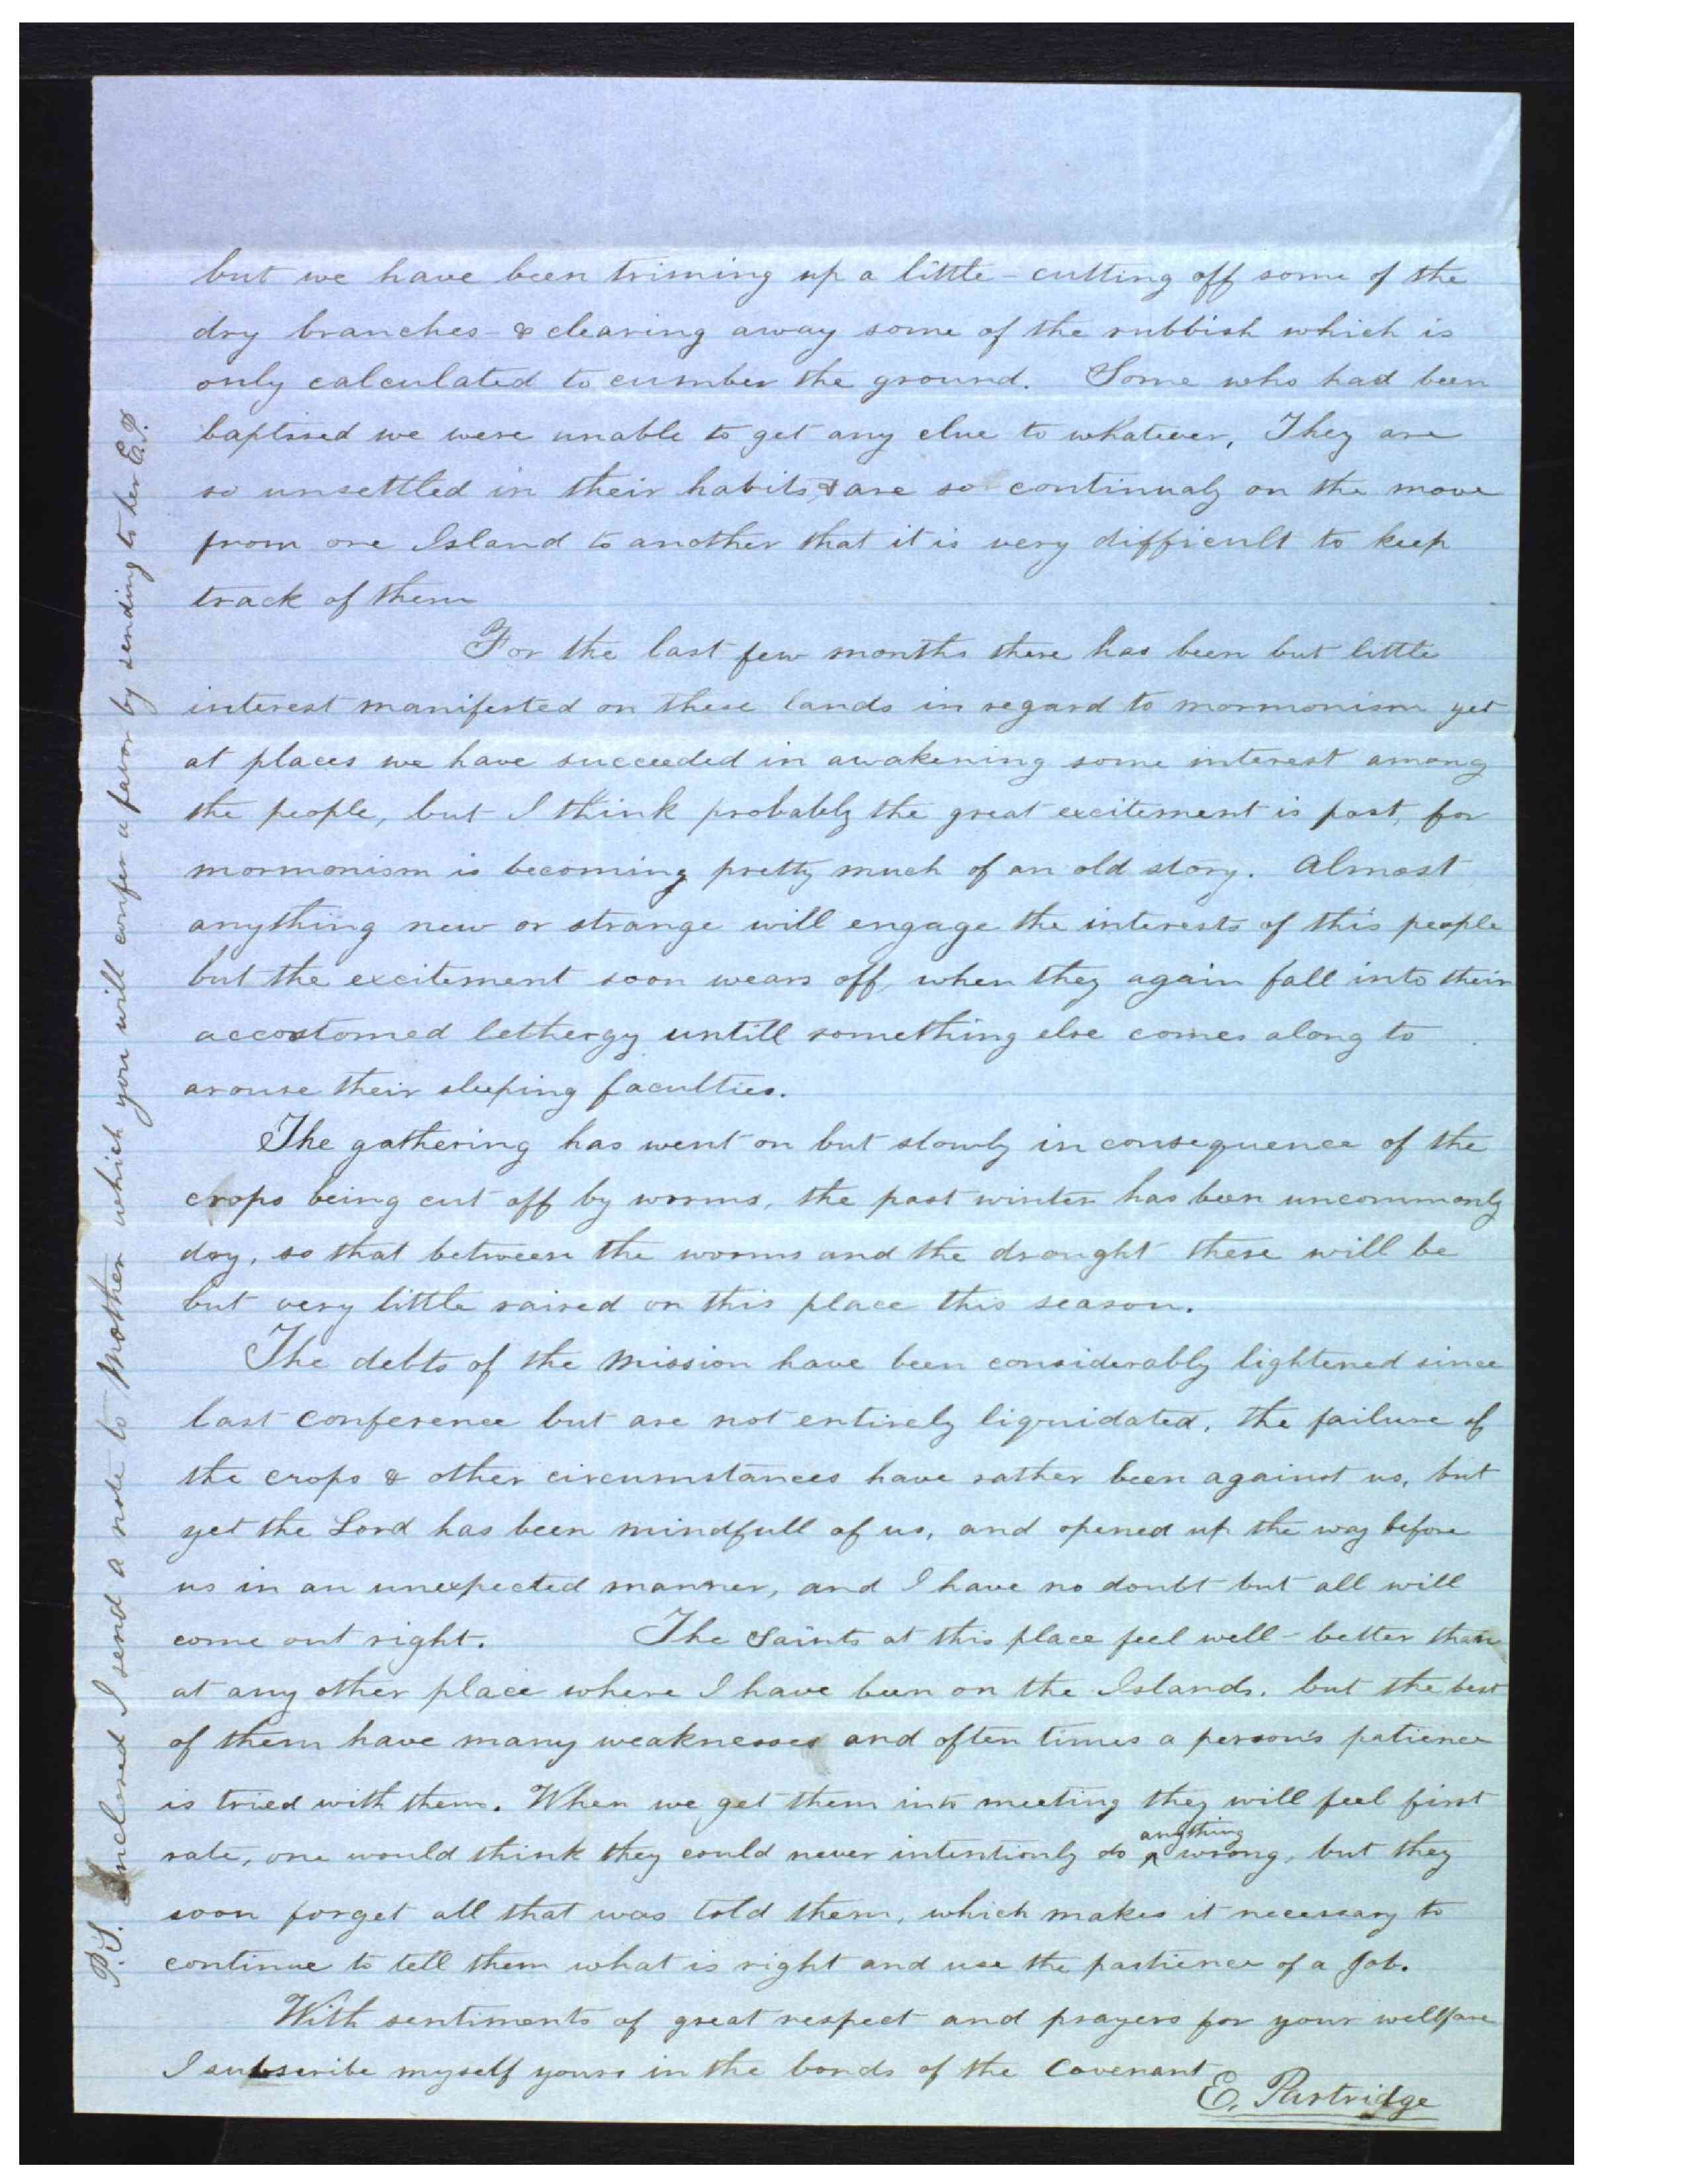 but we have been triming up a little - cutting off some of the
dry branches - & clearing away some of the rubbish which is
only calculated to cumber the ground. Some who had been
baptised we were unable to get any clue to whatever, They are
so unsettled in their habits, & are so continualy on the move
from one Island to another that it is very difficult to keep
track of them
For the last few months there has been but little
interest manifested on these lands in regard to mormonism yet
at places we have succeeded in awakening some interest among
the people, but I think probably the great excitement is past, for
mormonism is becoming pretty much of an old story. Almost
anything new or strange will engage the interests of this people
but the excitement soon wears off, when they again fall into their
accostomed lethergy untill something else comes along to
arouse their sleeping faculties.
The gathering has went on but slowly in consequence of the
crops being cut off by worms, the past winter has been uncommonly
dry, so that between the worms and the drought there will be
but very little raised on this place this season.
The debts of the Mission have been considerably lightened since
last conference but are not entirely liquidated, the failure of
the crops & other circumstances have rather been against us, but
yet the Lord has been mindfull of us, and opened up the way before
us in an unexpected manner, and I have no doubt but all will
come out right. The Saints at this place feel well - better than
at any other place where I have been on the Islands. but the best
of them have many weaknesses and often times a person's patience
is tried with them. When we get them into meeting they will feel first
rate, one would think they could never intentionly do anything wrong, but they
soon forget all that was told them, which makes it necessary to
continue to tell them what is right and use the pastience of a Job.
With sentiments of great respect and prayers for your wellfare
I subscribe myself yours in the bonds of the Covenant
E. Partridge
P.S. Inclosed I send a note to Mother which you will confer a favor by sending to her E.P.